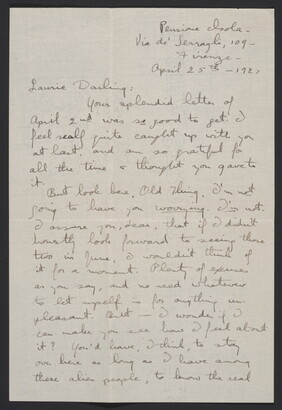 Pensione Isola -
Via de' Serragli, 109 -
Firenze -
April 25th - 192
Laurie Darling:
Your splendid letter of
April 2nd was so good to get. I
feel really quite caught up with you
at last, and am so grateful for
all the time & thought you gave to
it.
But look here, Old Thing, I'm not
going to have you worrying. I'm not.
I assure you, dear, that if I didn't
honestly look forward to seeing those
two in June, I wouldn't think of
it for a moment. Plenty of excuses
as you say, and no need whatever
to let myself in for anything un-
pleasant. But - I wonder if I
can make you see how I feel about
it? You'd have, I think, to stay
over here as long as I have among
these alien people, to know the real